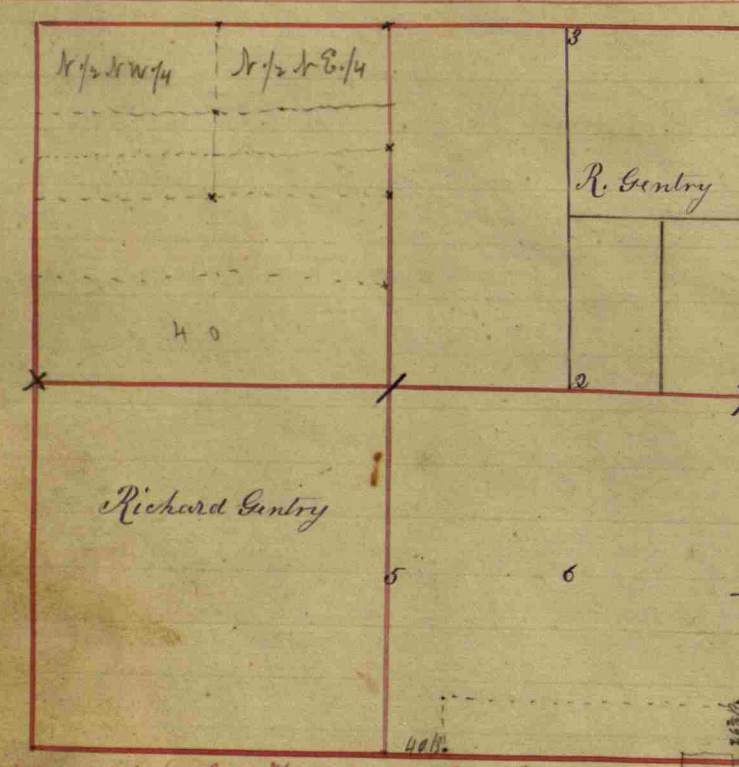 N./2 N W./4
N./2 N E./4
3
R. Gentry
4 0
2
Richard Gentry
5
6